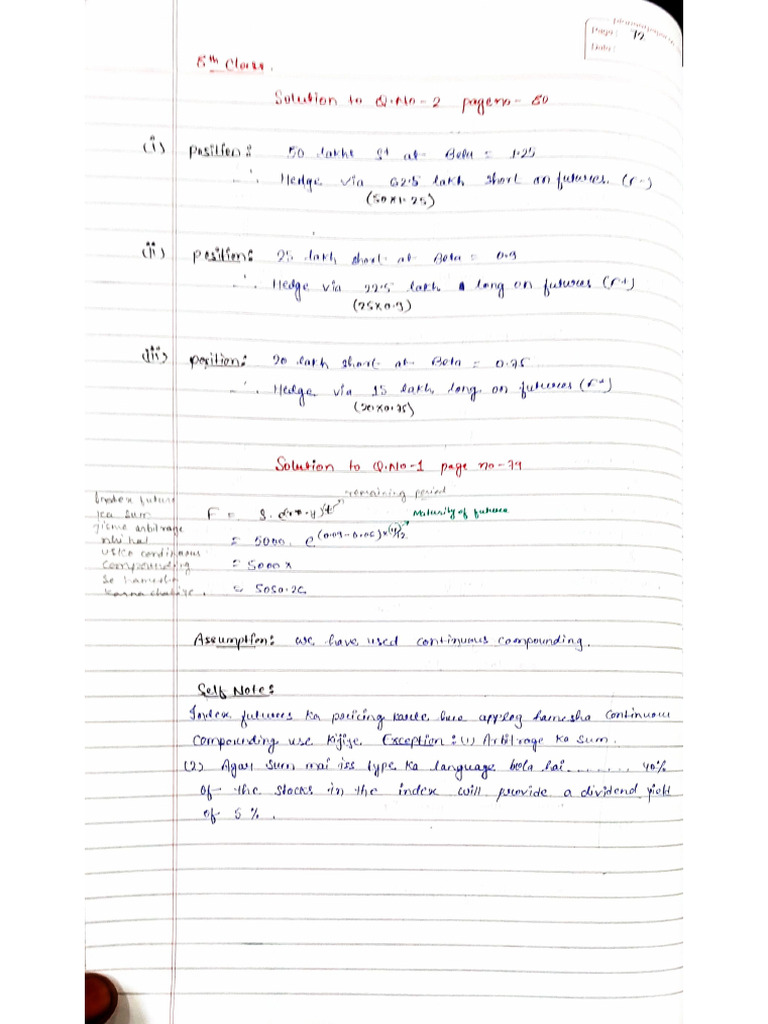 Page: 72
Date:
5th Class.
Solution to Q.No-2 page no- 80
(i) Position: 50 lakhs at Beta = 1.25
∴ Hedge via 62.5 lakh short on futures. (F-)
(50x1.25)
(ii) Position: 25 lakh short at Beta = 0.9
∴ Hedge via 22.5 lakh long on futures (F+)
(25x0.9)
(iii) Position: 20 lakh short at Beta = 0.75
∴ Hedge via 15 lakh long on futures (F+)
(20x0.75)
Solution to Q.No-1 page no-79
remaining period
Index future
ka sum
jisme arbitrage
nhi hai
usko continuous
compounding
se hamesha
karna chahiye.
F = S. e(r-y)t Maturity of future
= 5000. e(0.09-0.06)x(4/12)
= 5000 x
= 5050.25
Assumption: we have used continuous compounding.
Self Note:
Index futures ka pricing karte hue applog hamesha continuous
compounding use kijiye. Exception: (1) Arbitrage ka sum.
(2) Agar sum mai iss type ka language bola hai ....... 40%
of the stocks in the index will provide a dividend yield
of 5%.